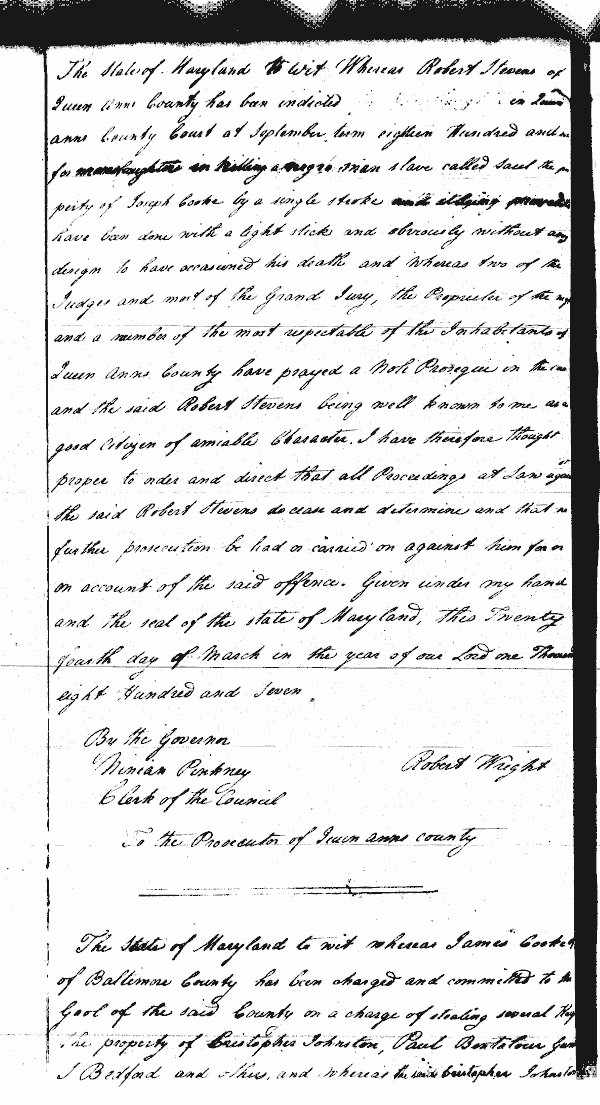 The State of Maryland to wit Whereas Robert Stevens of
Queen Anns County has been indicted in Queen
anns County Court at September term eighteen Hundred and
for manslaughter in killing a negro man slave called Saul the
perty of Joseph Cooke by a single stroke and
have been done with a light stick and obviously without any
design to have occasioned his death and whereas two of the
Judges and most of the Grand Jury, the Proprietor of the
and a number of the most respectable of the Inhabitants of
Queen Anns County have prayed a Noli Prosequi in the
and the said Robert Stevens being well known to me as a
good Citizen of amiable Character, I have therefore thought
proper to order and direct that all Proceedings at Law
the said Robert Stevens do cease and determine and that
further prosecution be had or carried on against him for or
on account of the said offence. Given under my hand
and the seal of the state of Maryland, this Twenty
fourth day of March in the year of our Lord one
eight Hundred and Seven.
By the Governor
Ninian Pinkney
Robert Wright
Clerk of the Council
To the Prosecutor of Queen anns county
The State of Maryland to wit whereas James Cooke
of Baltimore County has been charged and committed to the
Gaol of the said County on a charge of stealing several
The property of Cristopher Johnston, Paul Bentalour
J Bedford and others, and whereas the said Cristopher Johnston